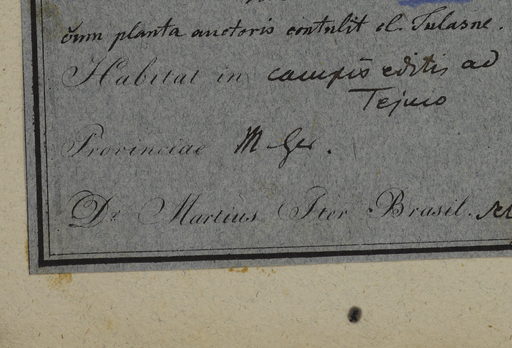 cum planta auctoris contulit cl. Tulasne.
Habitat in campis editis ad
Tejuco
Provinciae M. Ger.
Dr. Martius Iter Brasil.